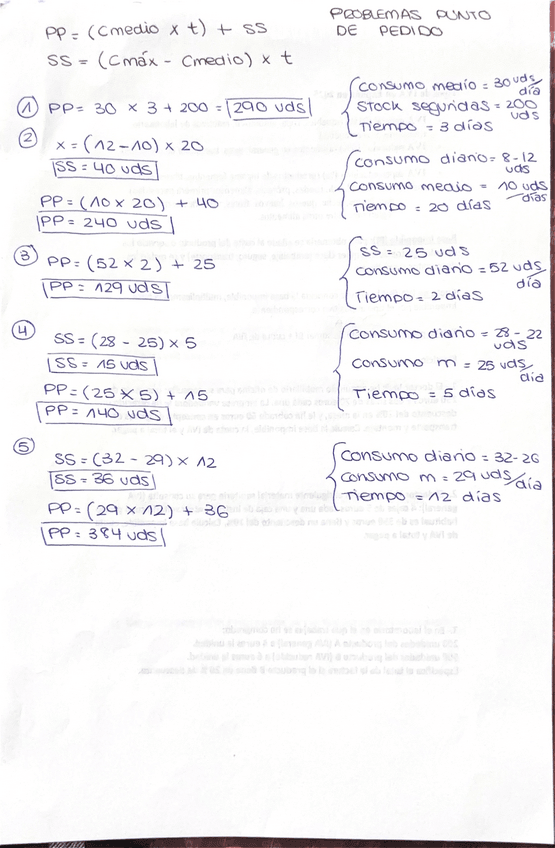 PROBLEMAS PUNTO
DE PEDIDO
PP = (Cmedio x t) + SS
SS = (Cmáx - Cmedio) x t
① PP = 30 x 3 + 200 = 290 uds
Consumo medio = 30 uds/día
Stock seguridas = 200 uds
Tiempo = 3 días
②
x = (12-10) x 20
SS = 40 uds
PP = (10 x 20) + 40
PP = 240 uds
Consumo diario = 8-12 uds
Consumo medio = 10 uds/día
Tiempo = 20 días
③ PP = (52 x 2) + 25
PP = 129 uds
SS = 25 uds
Consumo diario = 52 uds/día
Tiempo = 2 días
④
SS = (28 - 25) x 5
SS = 15 uds
PP = (25 x 5) + 15
PP = 140 uds
Consumo diario = 28-22 uds
Consumo m = 25 uds/día
Tiempo = 5 días
⑤
SS = (32 - 29) x 12
SS = 36 uds
PP = (29 x 12) + 36
PP = 384 uds
Consumo diario = 32-26
Consumo m = 29 uds/día
Tiempo = 12 días